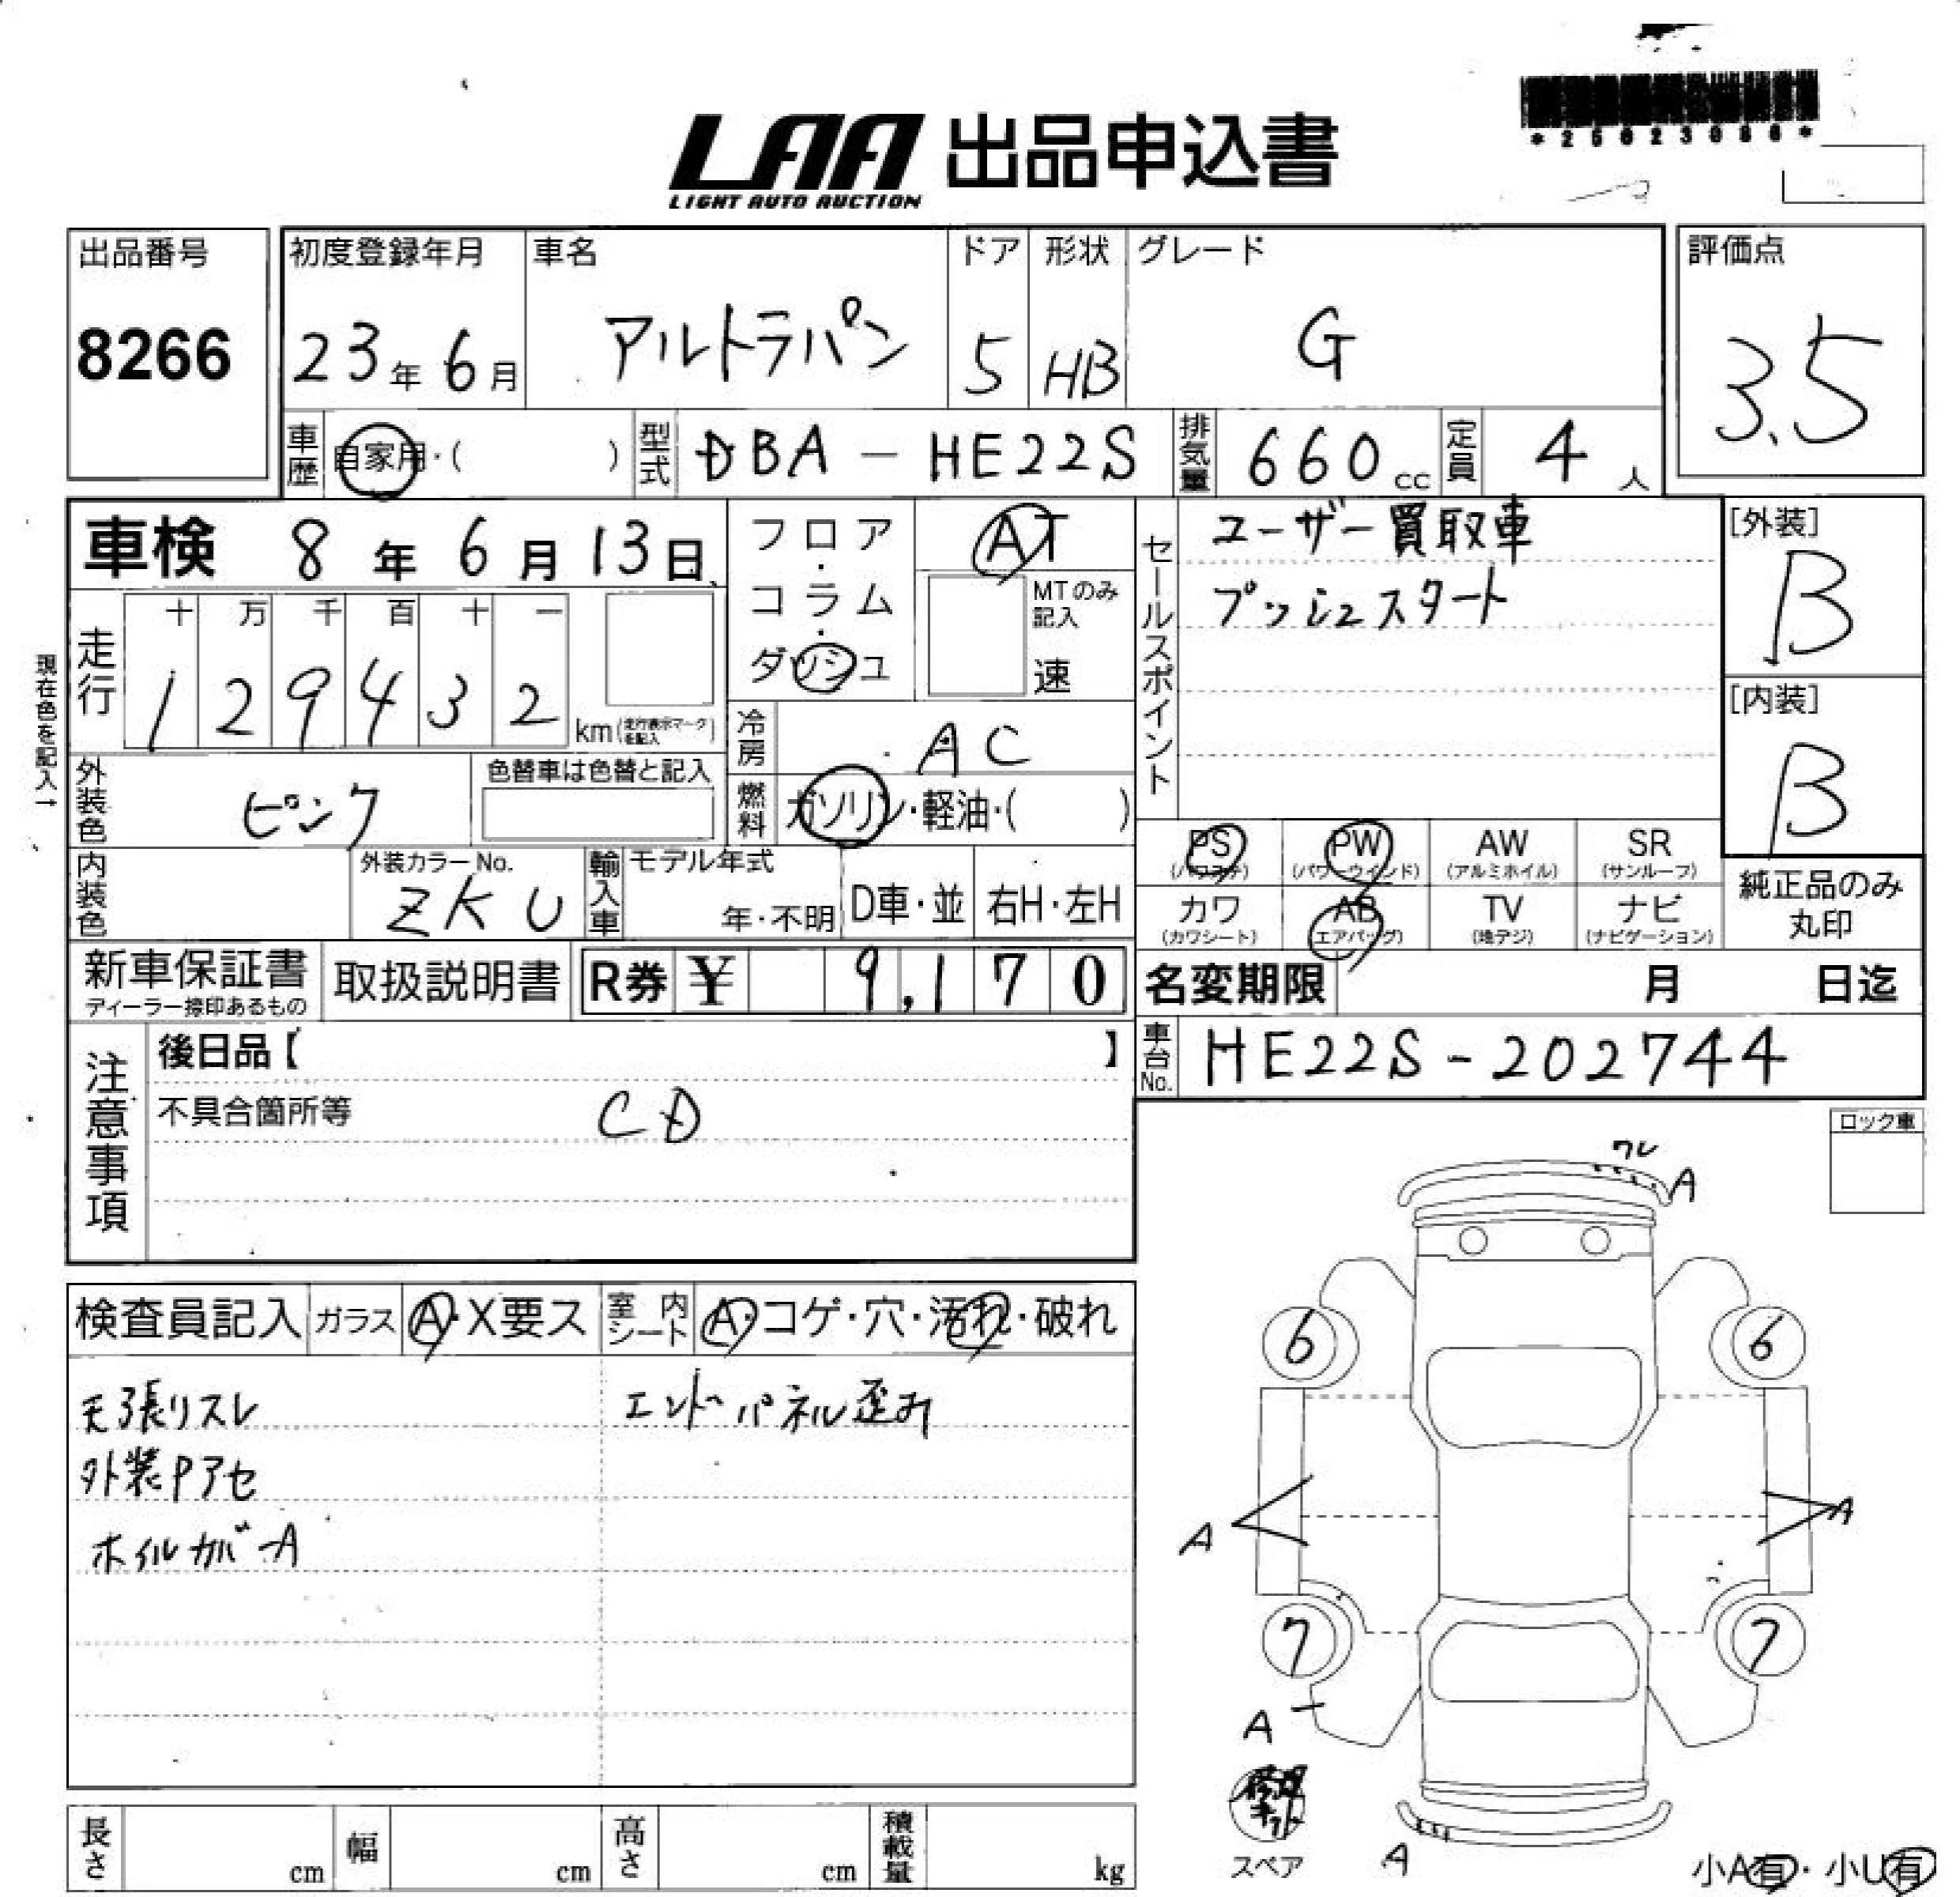 LAA 出品申込書
LIGHT AUTO AUCTION
*25023086*
出品番号
8266
初度登録年月
23年6月
車名
アルトラパン
ドア
5
形状
HB
グレード
G
評価点
3.5
車歴 自家用・( )
型式 DBA-HE22S
排気量 660cc
定員 4人
車検 8年6月13日
フロア・コラム・ダッシュ
AT
MTのみ記入
速
セールスポイント
ユーザー買取車
プッシュスタート
[外装]
B
[内装]
B
現在色を記入→
走行
十 万 千 百 十 一
1 2 9 4 3 2 km(走行表示マークを記入)
冷房 AC
外装色 ピンク
色替車は色替と記入
燃料 ガソリン・軽油・( )
PS AW PW SR
(パワステ) (パワーウインド) (アルミホイル) (サンルーフ)
カワ AB TV ナビ
(カワシート) (エアバッグ) (地デジ) (ナビゲーション)
純正品のみ
丸印
内装色
外装カラーNo.
ZKU
輸入車
モデル年式
年・不明
D車・並
右H・左H
新車保証書
ディーラー捺印あるもの
取扱説明書
R券 ¥ 9,170
名変期限 月 日迄
車台No. HE22S-202744
注意事項
後日品【 】
不具合箇所等 CD
ロック車
ワレ
A
検査員記入
ガラス A・X要ス
室内シート A・コゲ・穴・汚れ・破れ
天張リスレ
エンドパネル歪み
外装Pアセ
ホイルカバーA
6 6
A A
7 7
A
修理キット
スペア
A
小A有・小U有
長さ cm
幅 cm
高さ cm
積載量 kg